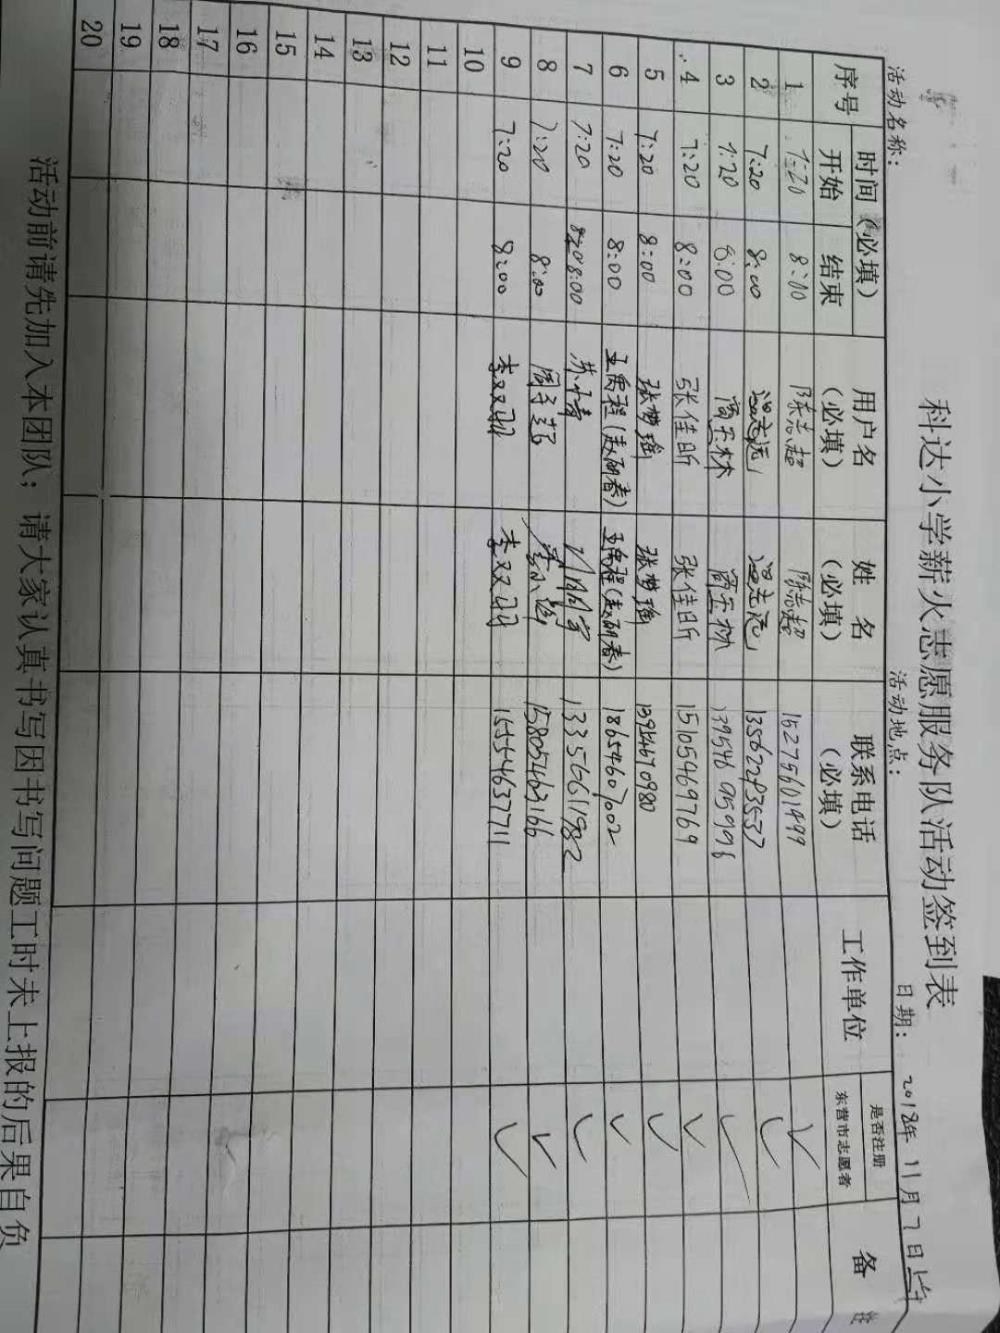 科达小学薪火志愿服务队活动签到表
活动名称： 活动地点： 日期： 2018年 11月 7日 上午
序号 时间（必填） 用户名（必填） 姓 名（必填） 联系电话（必填） 工作单位 是否注册东营市志愿者 备
开始 结束
1 7:20 8:00 陈志超 陈志超 15275601499 ✓
2 7:20 8:00 志远 志远 ✓
3 7:20 8:00 商玉林 商玉林 ✓
4 7:20 8:00 张佳昕 张佳昕 15105469769 ✓
5 7:20 8:00 张梦瑶 张梦瑶 13954670980 ✓
6 7:20 8:00 王禹程（赵丽春） 王禹程（赵丽春） 18654607002 ✓
7 7:20 8:00 1335661982 ✓
8 7:20 8:00 周子 15805463166 ✓
9 7:20 8:00 李双双 李双双 15554637711 ✓
10
11
12
13
14
15
16
17
18
19
20
活动前请先加入本团队；请大家认真书写因书写问题工时未上报的后果自负